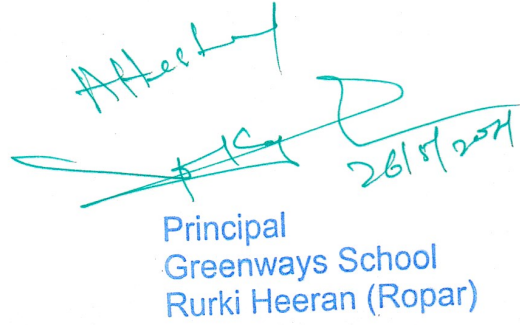 Attested
26/5/2021
Principal
Greenways School
Rurki Heeran (Ropar)